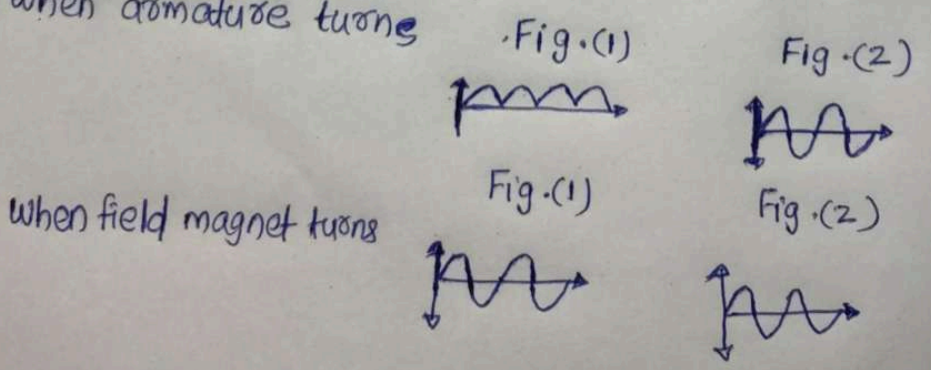 when armature turns
Fig.(1)
Fig.(2)
When field magnet turns
Fig.(1)
Fig.(2)